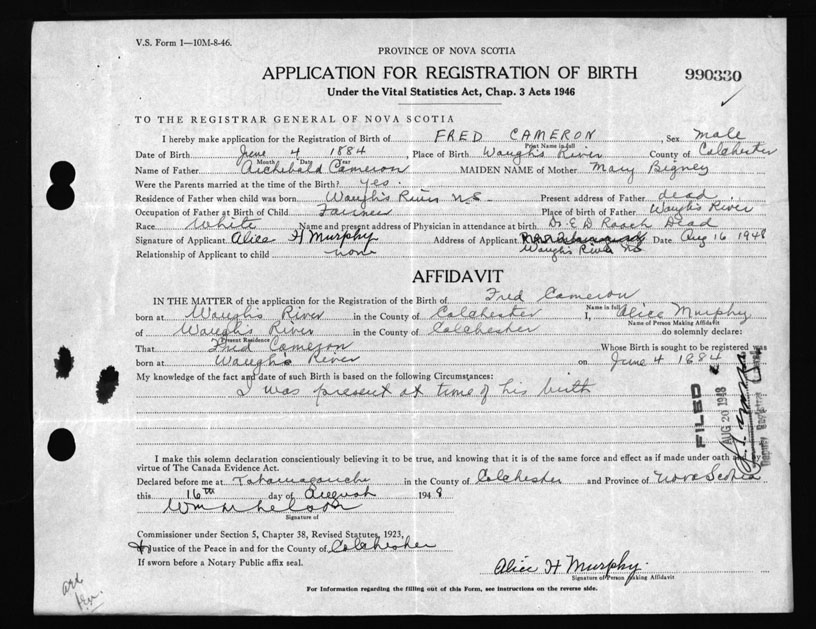 V.S. Form 1—10M-8-46.
PROVINCE OF NOVA SCOTIA
APPLICATION FOR REGISTRATION OF BIRTH 990330
Under the Vital Statistics Act, Chap. 3 Acts 1946
TO THE REGISTRAR GENERAL OF NOVA SCOTIA
I hereby make application for the Registration of Birth of FRED CAMERON, Sex male
Print Name in full
Date of Birth June 4 1884, Place of Birth Waugh's River County of Colchester
Month Date Year
Name of Father Archibald Cameron MAIDEN NAME of Mother Mary Bigney
Were the Parents married at the time of the Birth? yes.
Residence of Father when child was born Waugh's River N.S. Present address of Father dead
Occupation of Father at Birth of Child Farmer Place of birth of Father Waugh's River
Race White Name and present address of Physician in attendance at birth Dr. E D Roach Dead
Signature of Applicant Alice H Murphy Address of Applicant Date Aug 16 1948
Waugh's River NS
Relationship of Applicant to child none
AFFIDAVIT
IN THE MATTER of the application for the Registration of the Birth of Fred Cameron
Name in full
born at Waugh's River in the County of Colchester I, Alice Murphy
Name of Person Making Affidavit
of Waugh's River in the County of Colchester do solemnly declare:
Present Residence
That Fred Cameron Whose Birth is sought to be registered was
born at Waugh's River on June 4 1884
My knowledge of the fact and date of such Birth is based on the following Circumstances:
I was present at time of his birth
FILED
AUG 20 1948
I make this solemn declaration conscientiously believing it to be true, and knowing that it is of the same force and effect as if made under oath and by
virtue of The Canada Evidence Act.
Declared before me at Tatamagouche in the County of Colchester and Province of Nova Scotia
this 16th day of August 1948
Wm
Signature of
Commissioner under Section 5, Chapter 38, Revised Statutes, 1923,
Justice of the Peace in and for the County of Colchester
If sworn before a Notary Public affix seal.
Alice H Murphy.
Signature of Person Making Affidavit
For Information regarding the filling out of this Form, see instructions on the reverse side.